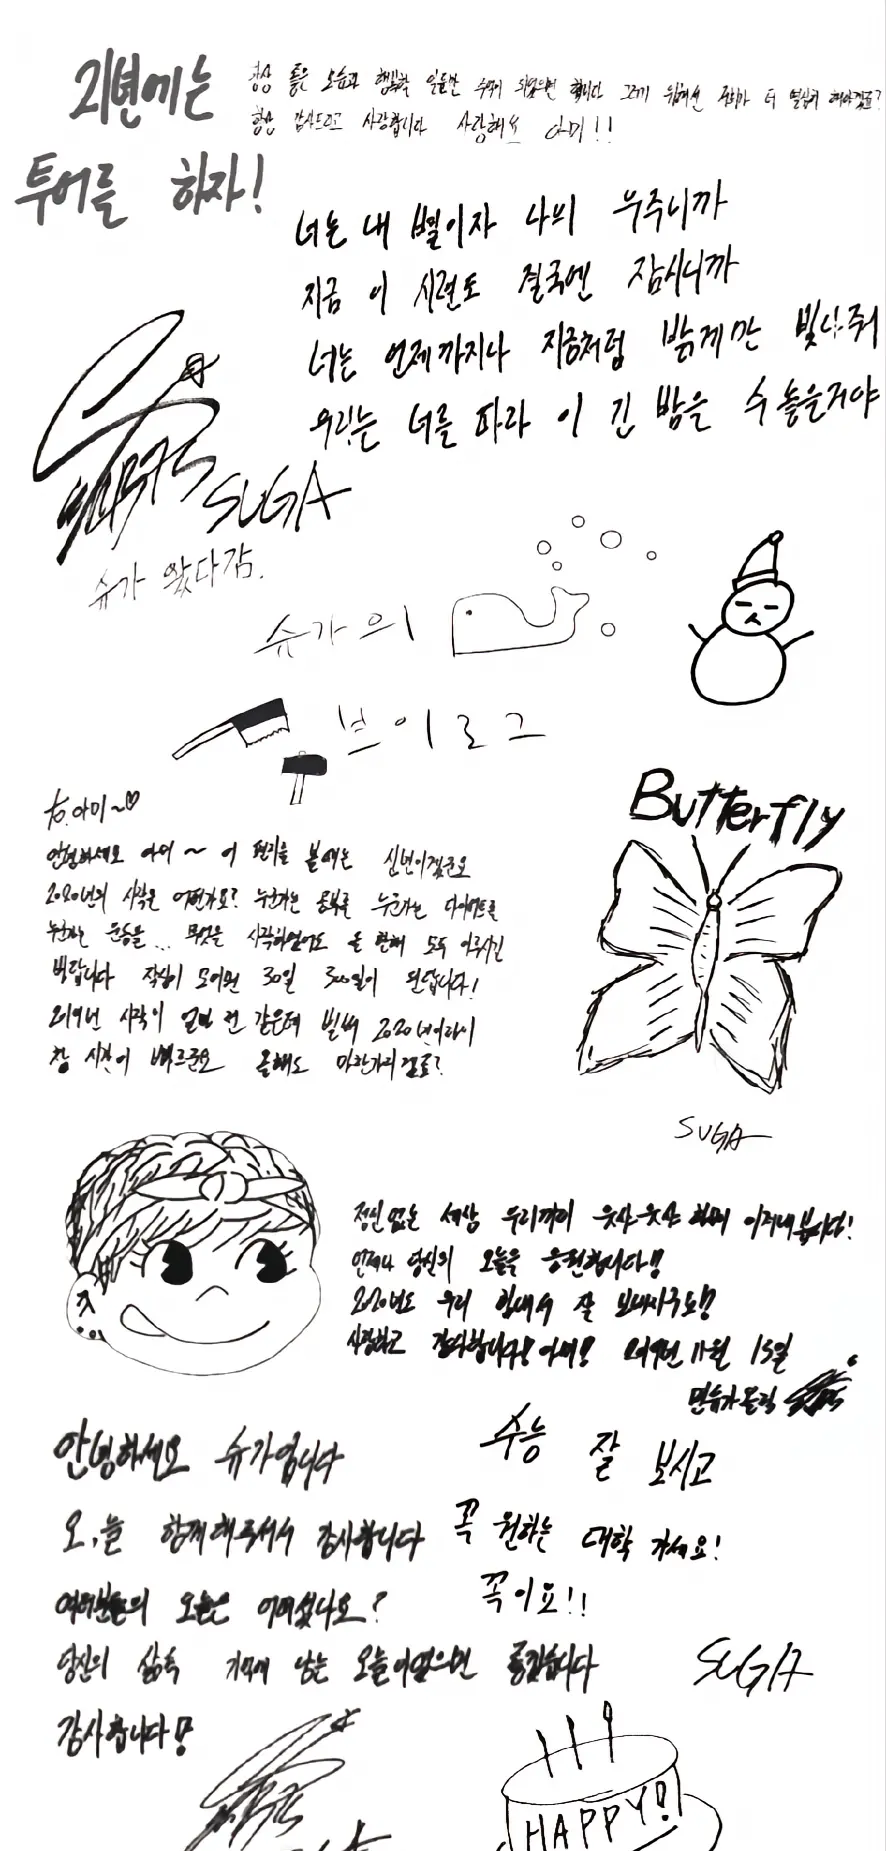 21년에는
투어를 하자!
항상 좋은 모습과 행복한 일들만 주위에 되었으면 합니다 그러기 위해선 저희가 더 열심히 해야겠죠?
항상 감사드리고 사랑합니다 사랑해요 아미!!
너는 내 별이자 나의 우주니까
지금 이 시련도 결국엔 잠시니까
너는 언제까지나 지금처럼 밝게만 빛나줘
우리는 너를 따라 이 긴 밤을 수놓을거야
SUGA
슈가 왔다감.
슈가의
브이로그
to.아미~♡
안녕하세요 아미~ 이 편지를 볼때는 신년이겠군요
2020년의 시작은 어떤가요? 누군가는 공부를 누군가는 다이어트를
누군가는 운동을... 무엇을 시작하였어도 올 한해 모두 이루시길
바랍니다 작심이 모이면 30일 300일이 된답니다!
2019년 시작이 얼마 전 같은데 벌써 2020년이라니
참 시간이 빠르군요 올해도 마찬가지겠죠?
Butterfly
SUGA
정신없는 세상 우리끼리 으쌰으쌰 하며 이겨내봅시다!
언제나 당신의 오늘을 응원합니다!!
2020년도 우리 힘내서 잘 보내자구요!!
사랑하고 감사합니다! 아미! 2019년 11월 15일
민슈가 올림
안녕하세요 슈가입니다
오늘 함께해주셔서 감사합니다
여러분들의 오늘은 어떠셨나요?
당신의 삶 속 기억에 남는 오늘이였으면 좋겠습니다
감사합니다!
수능 잘 보시고
꼭 원하는 대학 가세요!
꼭이요!!
SUGA
HAPPY!